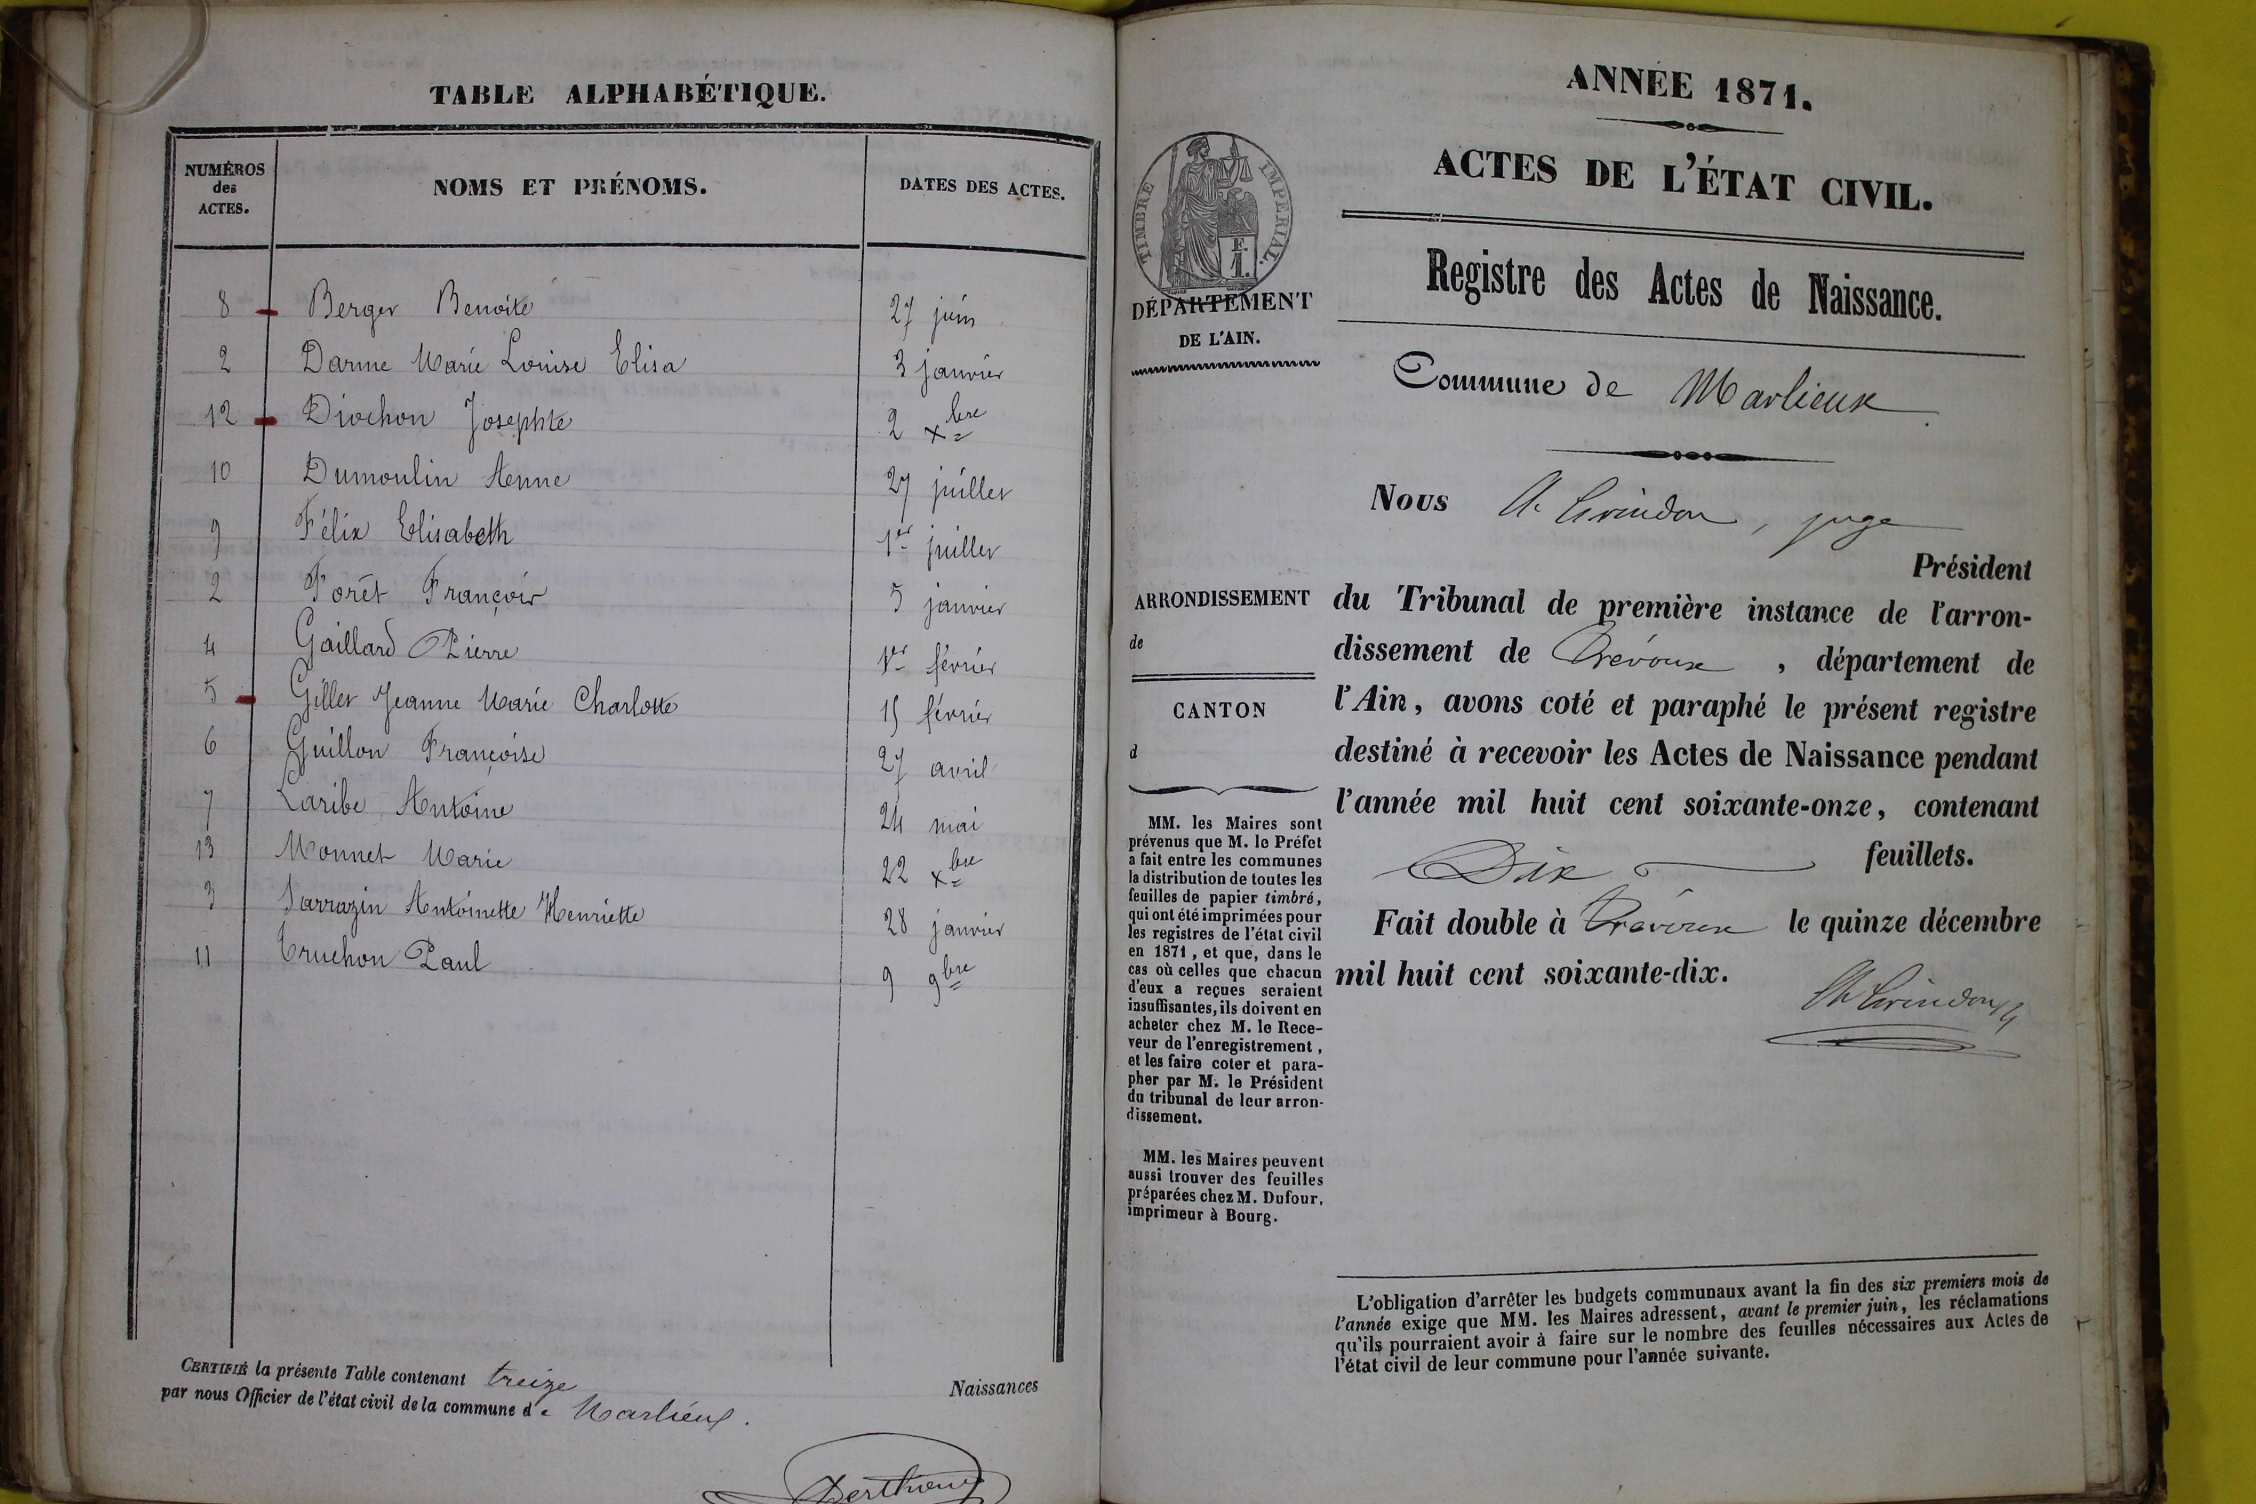 TABLE ALPHABÉTIQUE.
NUMÉROS des ACTES.
NOMS ET PRÉNOMS.
DATES DES ACTES.
8 Berger Benoite 27 juin
2 Darme Marie Louise Elisa 3 janvier
12 Diochon Josephte 2 xbre
10 Dumoulin Anne 27 juillet
9 Félix Elisabeth 1er juillet
2 Forêt François 5 janvier
4 Gaillard Pierre 1er février
5 Gillet Jeanne Marie Charlotte 15 février
6 Guillon Françoise 27 avril
7 Laribe Antoine 24 mai
13 Monnet Marie 22 xbre
3 Sarrazin Antoinette Henriette 28 janvier
11 Truchon Paul 9 9bre
CERTIFIÉ la présente Table contenant treize Naissances
par nous Officier de l'état civil de la commune de Marlieux.
ANNÉE 1871.
ACTES DE L'ÉTAT CIVIL.
TIMBRE IMPERIAL.
F.
1.
DÉPARTEMENT
DE L'AIN.
Registre des Actes de Naissance.
Commune de Marlieux
Nous A. Grindon, juge
Président
du Tribunal de première instance de l'arron-
dissement de Trévoux, département de
l'Ain, avons coté et paraphé le présent registre
destiné à recevoir les Actes de Naissance pendant
l'année mil huit cent soixante-onze, contenant
Dix feuillets.
Fait double à Trévoux le quinze décembre
mil huit cent soixante-dix.
ARRONDISSEMENT
de
CANTON
d
MM. les Maires sont
prévenus que M. le Préfet
a fait entre les communes
la distribution de toutes les
feuilles de papier timbré,
qui ont été imprimées pour
les registres de l'état civil
en 1871, et que, dans le
cas où celles que chacun
d'eux a reçues seraient
insuffisantes, ils doivent en
acheter chez M. le Rece-
veur de l'enregistrement,
et les faire coter et para-
pher par M. le Président
du tribunal de leur arron-
dissement.
MM. les Maires peuvent
aussi trouver des feuilles
préparées chez M. Dufour,
imprimeur à Bourg.
L'obligation d'arrêter les budgets communaux avant la fin des six premiers mois de
l'année exige que MM. les Maires adressent, avant le premier juin, les réclamations
qu'ils pourraient avoir à faire sur le nombre des feuilles nécessaires aux Actes de
l'état civil de leur commune pour l'année suivante.